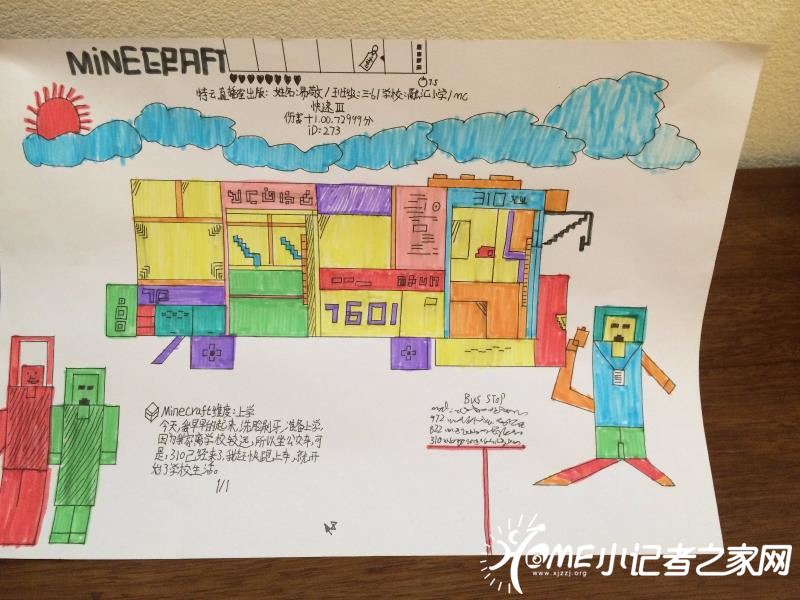 MINECRAFT
7.5
姓名:易敬/班级:三6/学校:融汇小学/MC
快速 III
伤害+1.00.72999分
iD:273
310
1601
Minecraft维度:上学
今天,我早早的起来,洗脸刷牙,准备上学,
因为我家离学校较远,所以坐公交车,可
是,310已经来了,我赶快跑上车,就开
始了学校生活。
1/1
BUS STOP
972
822
310
HOME小记者之家网
www.xjzzj.org